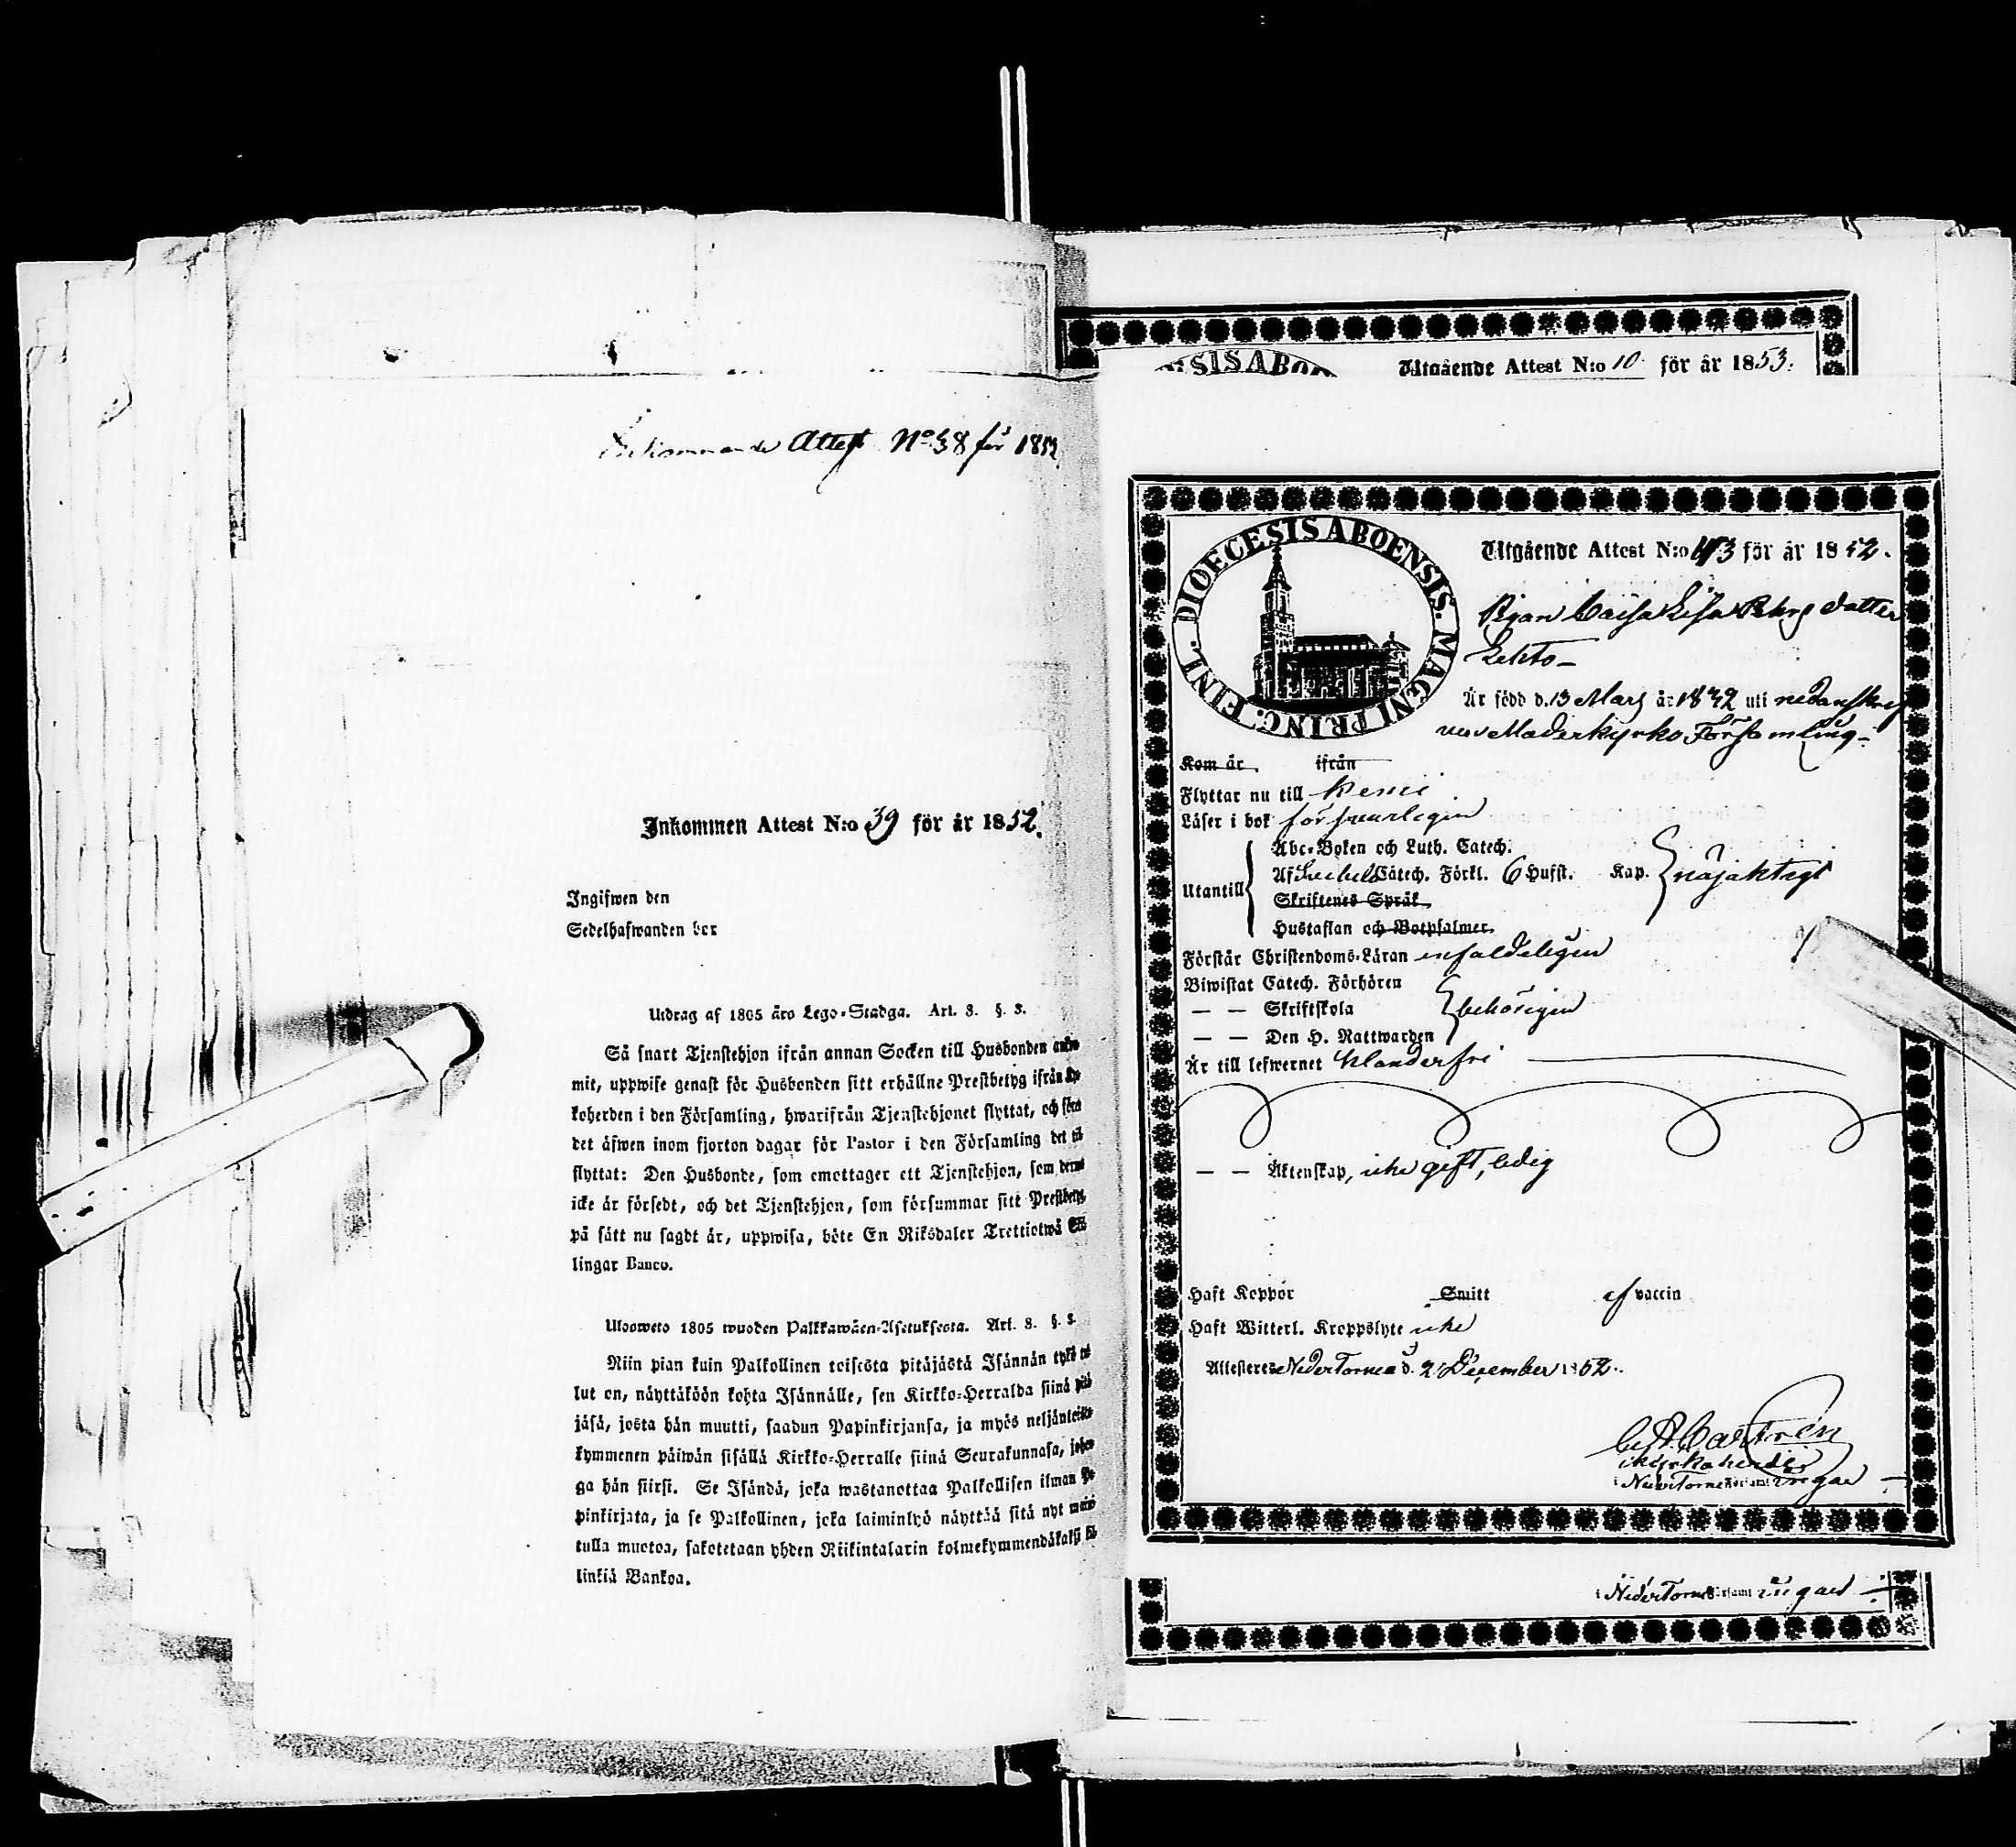 Inkommande Attest No 38 för 1852
Inkommen Attest N:o 39 för år 1852.
Ingifwen den
Sedelhafwanden bor
Utdrag af 1805 åro Lego-Stadga. Art. 8. §. 3.
Så snart Tjenstehjon ifrån annan Socken till Husbonden
mit, uppwise genast för Husbonden sitt erhållne Prestbetyg ifrån
koherden i den Församling, hwarifrån Tjenstehjonet flyttat, och
det äfwen inom fjorton dagar för Pastor i den Församling det
flyttat: Den Husbonde, som emottager ett Tjenstehjon, som
icke är försedt, och det Tjenstehjon, som försummar sitt Prestbetyg
på sätt nu sagdt är, uppwisa, böte En Riksdaler Trettiotwå
lingar Banco.
Ulosweto 1805 wuoden Palkkawäen-Asetuksesta. Art. 8. §. 3.
Niin pian kuin Palkollinen toisesta pitäjästä Isännän tykö
lut on, näyttäköön kohta Isännälle, sen Kirkko-Herralda siinä
jäsä, josta hän muutti, saadun Papinkirjansa, ja myös
kymmenen päiwän sisällä Kirkko-Herralle siinä Seurakunnasa,
ga hän siirsi. Se Isändä, joka wastanottaa Palkollisen ilman
pinkirjata, ja se Palkollinen, joka laiminlyö näyttää sitä nyt
tulla muotoa, sakotetaan yhden Riikintalarin kolmekymmendäkaksi
linkiä Bankoa.
Utgående Attest N:o 10 för år 1853.
DIOECESIS ABOENSIS. MAGNI PRINC. FINL.
Utgående Attest N:o 43 för år 1852.
Pigan Caisa Lisa Pehrs dotter
Lehto
Är född d. 13 Mars år 1832 uti nedanskref
ne Moderkyrko Församling.
Kom år ifrån
Flyttar nu till Kemi
Läser i bok försvarligen
Abc-Boken och Luth. Catech.
Utantill Af Catech. Förkl. 6 Hufst. Kap. nöjaktigt
Skriftenes Språk
Hustaflan och Botpsalmer.
Förstår Christendoms-Läran enfaldeligen
Biwistat Catech. Förhören
— — Skriftskola behörigen
— — Den H. Nattwarden
Är till lefwernet klanderfri
— — Äktenskap, icke gift, ledig
Haft Koppor Smitt af vaccin
Haft Witterl. Kroppslyte icke
Attesteres Neder Torneå d. 2 December 1852.
Castrén
Kyrkoherde
i Neder Torneå
i Neder Torneå